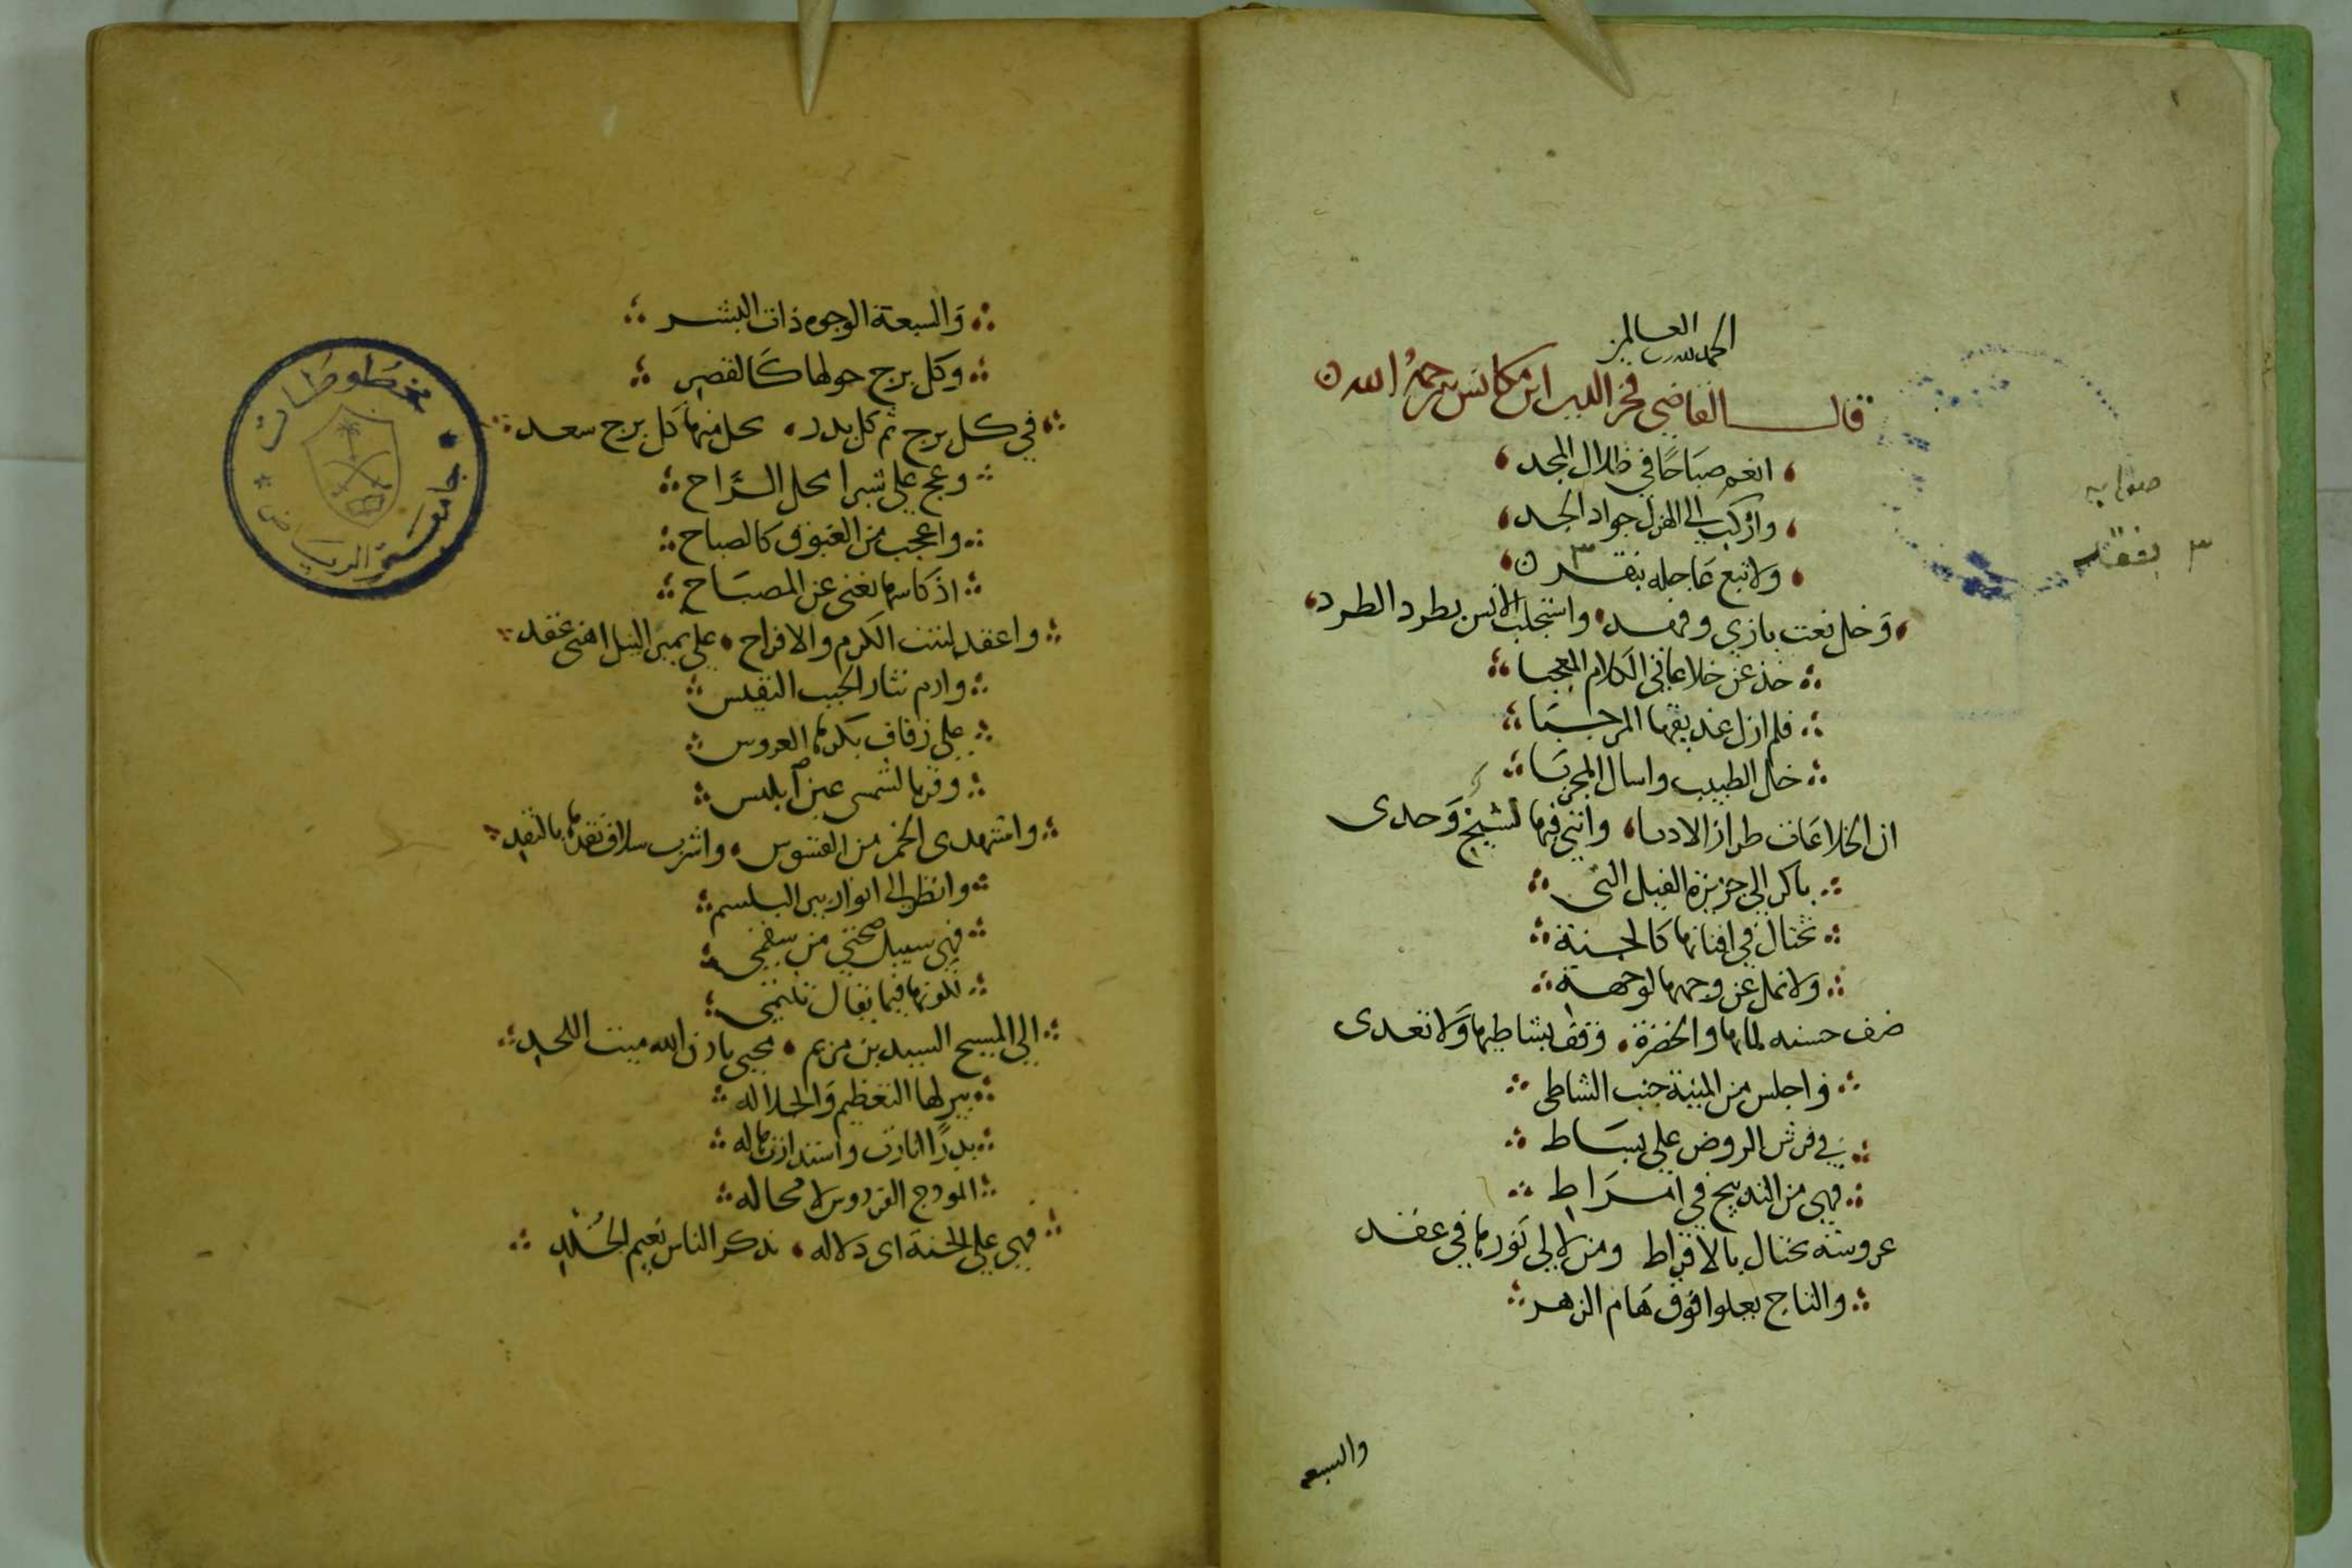 ١
الحمد لله رب العالمين
قال القاضي فخر الدين ابن مكانس رحمه الله
انعم صباحًا في ظلال المجد
واركب الى الهزل جواد الجد
ولا تبع عاجله بنقد
صوابه
٣ بفقد
وخل نعت بازي وفهد واستجلب الانس بطرد الطرد
خذ عن خلاعاتي الكلام المعجبا
فلم ازل عذيقها المرجبا
خال الطبيب واسال المجربا
ان الخلاعات طراز الادبا وانني فيها لشيخ وحدى
باكر الى جزيرة الفيل التى
تختال في افنانها كالجنة
ولا تمل عن وجهها لوجهة
ضرف حسنه لمائها والخضرة وقف بشاطيها ولا تعدى
واجلس من المنية جنب الشاطى
في فرش الروض على بساط
فهى من التدبيج في امراط
عروسة تختال بالاقراط ومن لالى نورها في عقد
والتاج يعلوا فوق هام الزهر
والسبعه
والسبعة الوجوه ذات البشر
وكل برج حولها كالقصر
في كل برج ثم كل بدر يحل منها كل برج سعد
وعج على شبرا محل الراح
واعجب من الغبوق كالصباح
اذ كاسها تغنى عن المصباح
واعقد لبنت الكرم والافراح على يمين النيل اهنى عقد
وارم نثار الحبب النفيس
على زفاف بكرها العروس
وقربها لشمس عين ابليس
واشتهدى الخمر من القسوس واشرب سلاف نقدها بالنقد
وانظر الى انوار بير البلسم
فهى سبيل صحتي من سقمي
لكونها فيما يقال تنتمى
الى المسيح السيد بن مريم محيى باذن الله ميت اللحد
بير لها التعظيم والجلاله
بدرًا انارت واستدارت هاله
انموذج الفردوس لا محاله
فهى على الجنة اى دلاله تذكر الناس نعيم الخلد
مخطوطات
جامعة الرياض